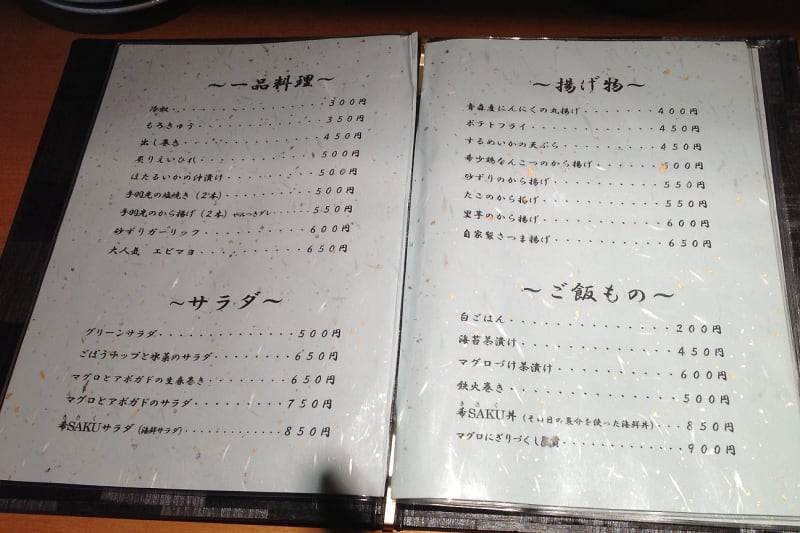 ～一品料理～
冷奴・・・・・・・・・・・・・・・・・300円
もろきゅう・・・・・・・・・・・・・・350円
出し巻き・・・・・・・・・・・・・・・450円
炙りえいひれ・・・・・・・・・・・・・500円
ほたるいかの汁漬け・・・・・・・・・・500円
手羽先の塩焼き（2本）・・・・・・・・500円
手羽先のから揚げ（2本）やみつきダレ・・・・550円
砂ずりガーリック・・・・・・・・・・・600円
大人気 エビマヨ・・・・・・・・・・・650円
～サラダ～
グリーンサラダ・・・・・・・・・・・・500円
ごぼうチップと水菜のサラダ・・・・・・650円
マグロとアボガドの生春巻き・・・・・・650円
マグロとアボガドのサラダ・・・・・・・750円
きさく
希SAKUサラダ（海鮮サラダ）・・・・・・850円
～揚げ物～
青森産にんにくの丸揚げ・・・・・・・・400円
ポテトフライ・・・・・・・・・・・・・450円
するめいかの天ぷら・・・・・・・・・・450円
希少鶏なんこつのから揚げ・・・・・・・500円
砂ずりのから揚げ・・・・・・・・・・・550円
たこのから揚げ・・・・・・・・・・・・550円
里芋のから揚げ・・・・・・・・・・・・600円
自家製さつま揚げ・・・・・・・・・・・650円
～ご飯もの～
白ごはん・・・・・・・・・・・・・・・200円
海苔茶漬け・・・・・・・・・・・・・・450円
マグロづけ茶漬け・・・・・・・・・・・600円
鉄火巻き・・・・・・・・・・・・・・・500円
きさく
希SAKU丼（その日の魚介を使った海鮮丼）・・・850円
マグロにぎりづくし・・・・・・・・・・900円